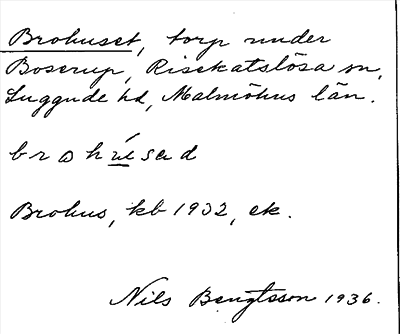 Brohuset, torp under
Boserup, Risekatslösa sn,
Luggude hd, Malmöhus län.
Brohus, kb 1932, ek.
Nils Bengtsson 1936.